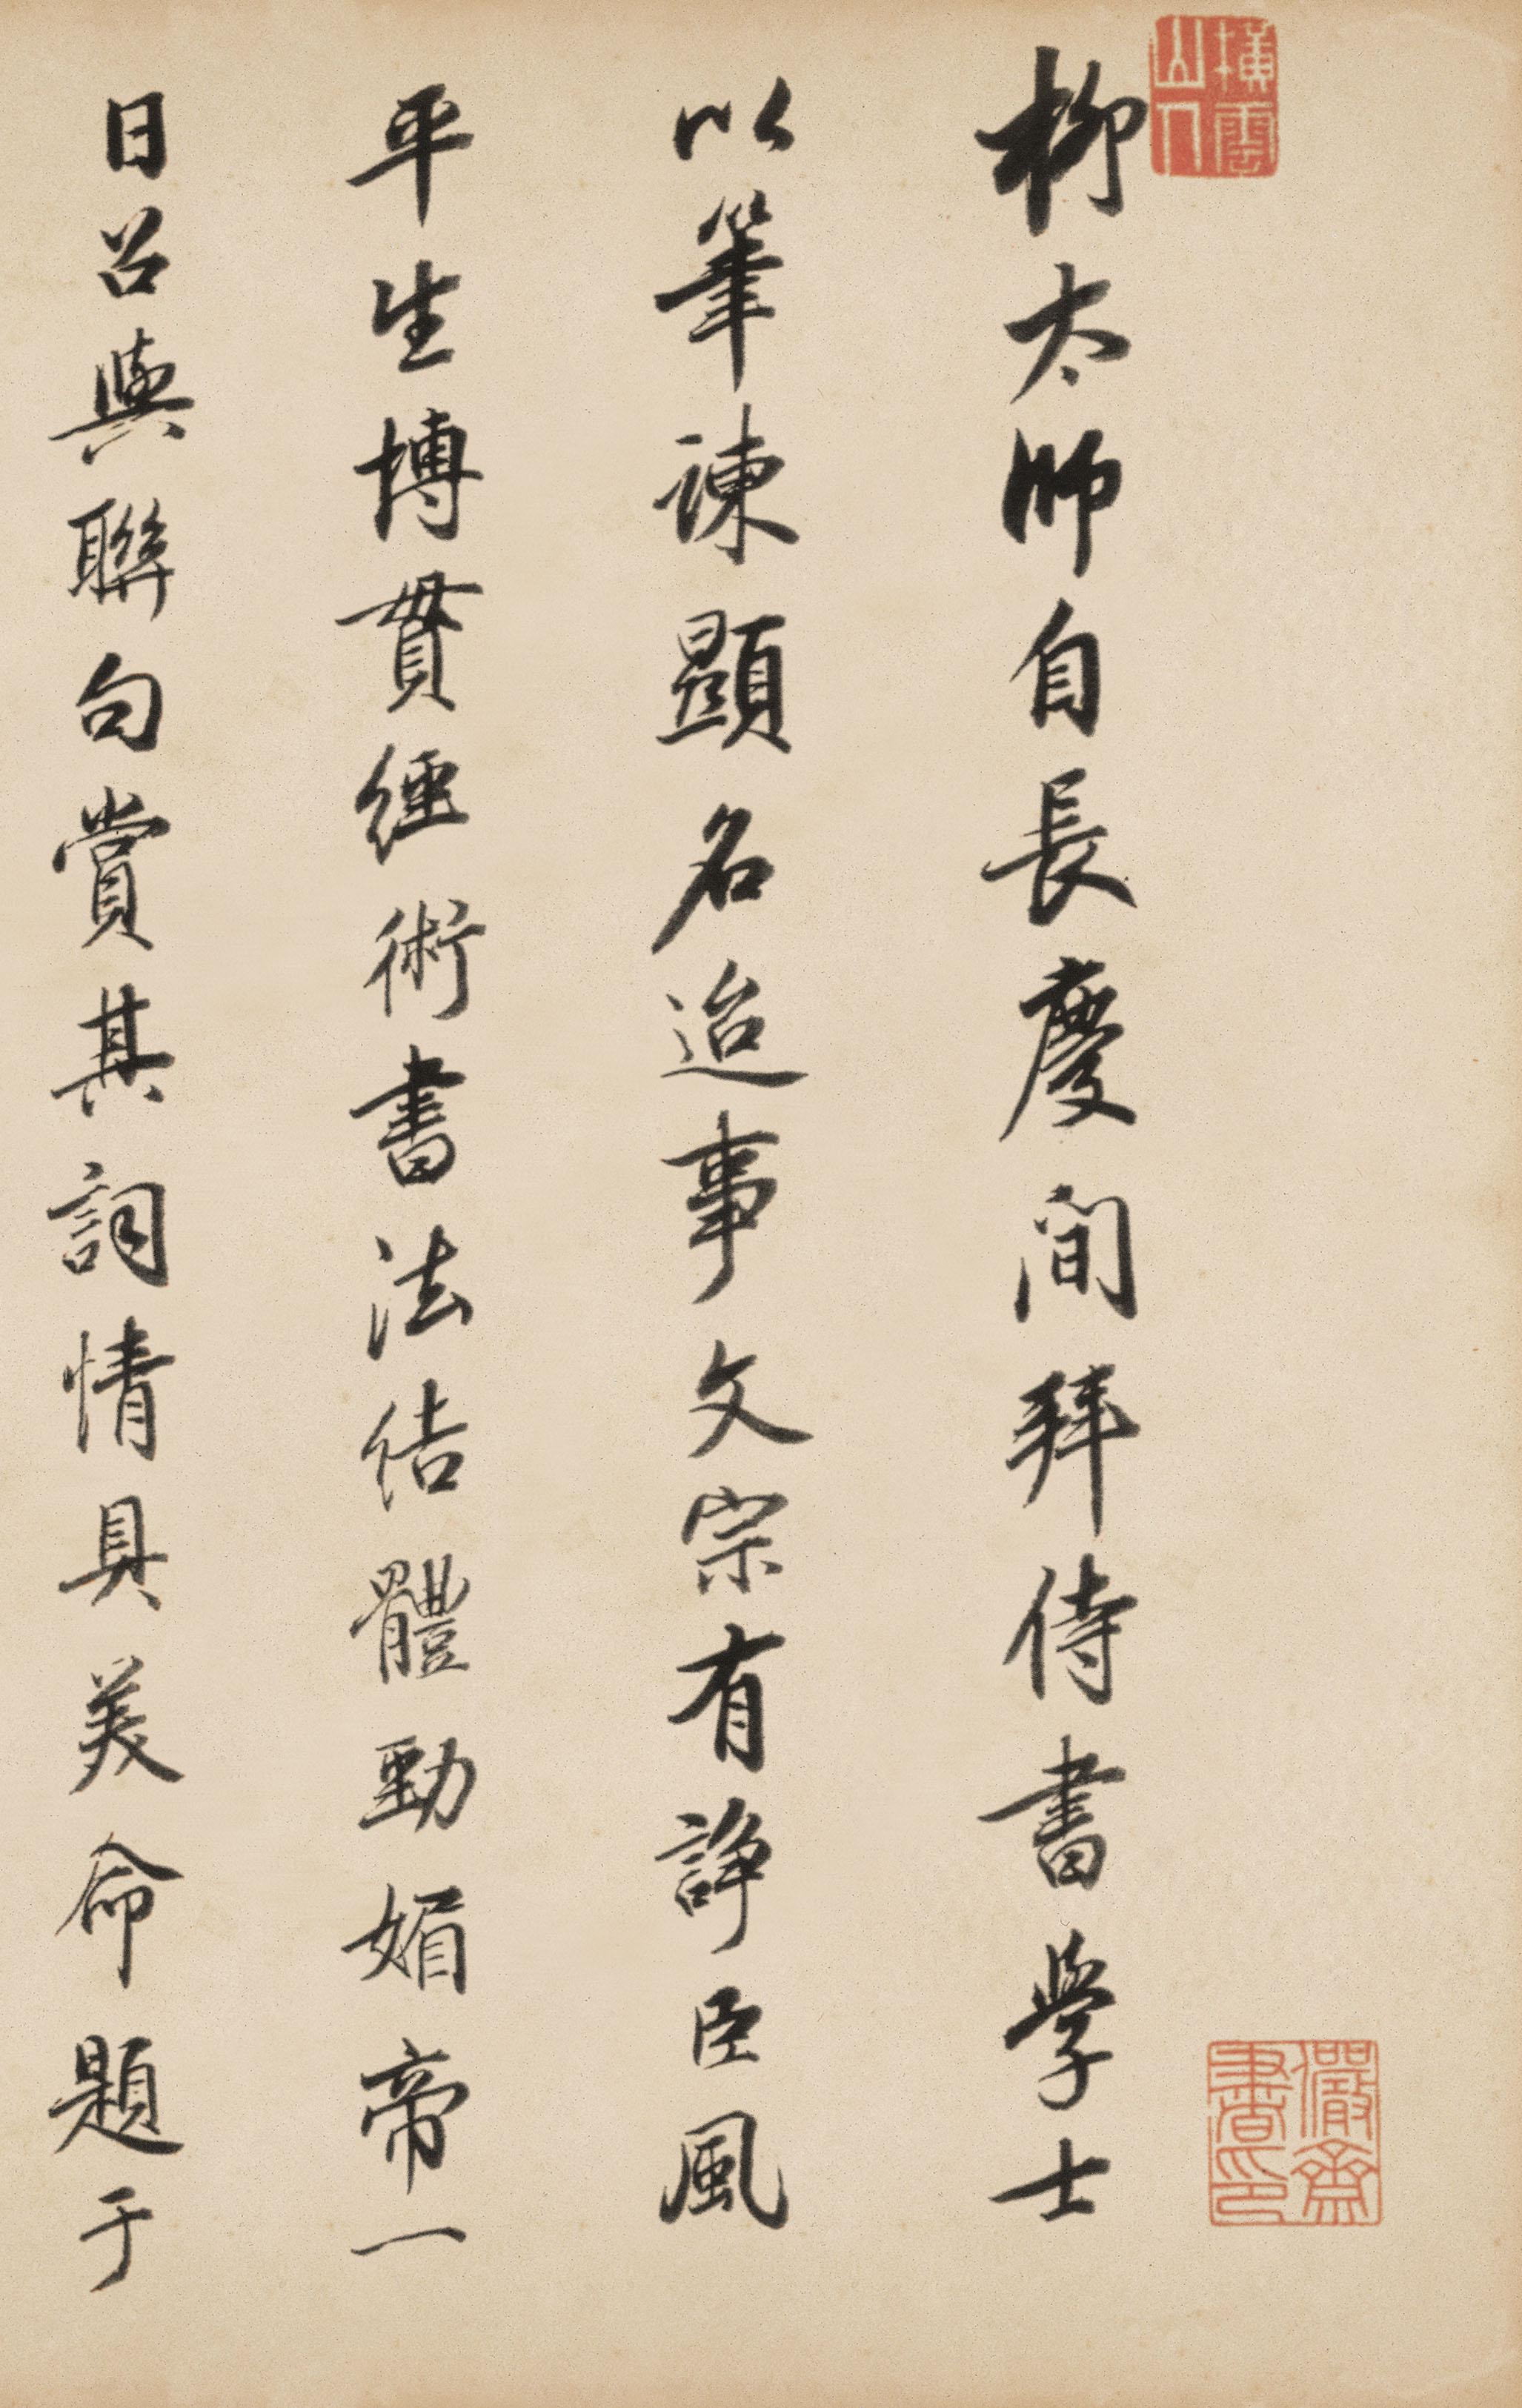 橫雲山人
柳太師自長慶間拜侍書學士
以筆諫顯名迨事文宗有諍臣風
平生博貫經術書法結體勁媚帝一
日召與聯句賞其詞情具美命題于
儼齋書印